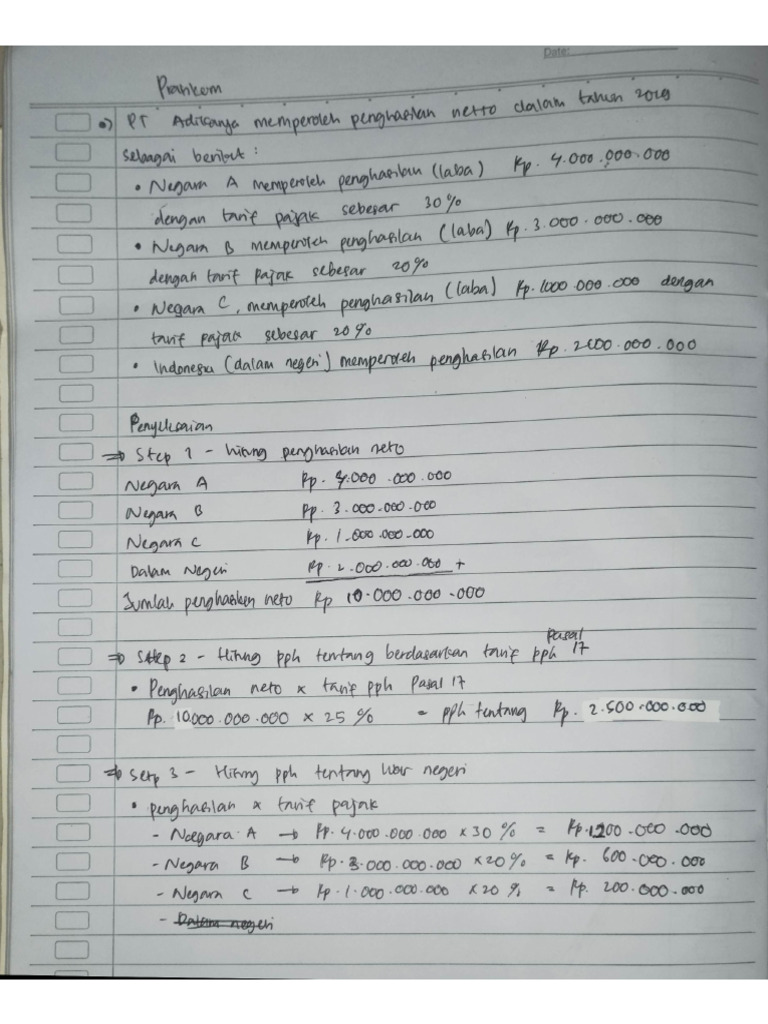 Date:
Praktikum
•) PT Adikarya memperoleh penghasilan netto dalam tahun 2019
sebagai berikut :
• Negara A memperoleh penghasilan (laba) Rp. 4.000.000.000
dengan tarif pajak sebesar 30%
• Negara B memperoleh penghasilan (laba) Rp. 3.000.000.000
dengan tarif pajak sebesar 20%
• Negara C, memperoleh penghasilan (laba) Rp. 1000.000.000 dengan
tarif pajak sebesar 20%
• Indonesia (dalam negeri) memperoleh penghasilan Rp. 2000.000.000
Penyelesaian
⇒ Step 1 - hitung penghasilan neto
Negara A Rp. 4.000.000.000
Negara B Rp. 3.000.000.000
Negara C Rp. 1.000.000.000
Dalam Negeri Rp. 2.000.000.000 +
Jumlah penghasilan neto Rp 10.000.000.000
⇒ Step 2 - Hitung pph tentang berdasarkan tarif pph pasal 17
• Penghasilan neto x tarif pph Pasal 17
Rp. 10.000.000.000 x 25 % = pph tentang Rp. 2.500.000.000
⇒ Setp 3 - Hitung pph tentang luar negeri
• penghasilan x tarif pajak
- Noegara A → Rp. 4.000.000.000 x 30 % = Rp. 1.200.000.000
- Negara B → Rp. 3.000.000.000 x 20 % = Rp. 600.000.000
- Negara C → Rp. 1.000.000.000 x 20 % = Rp. 200.000.000
- Dalam negeri